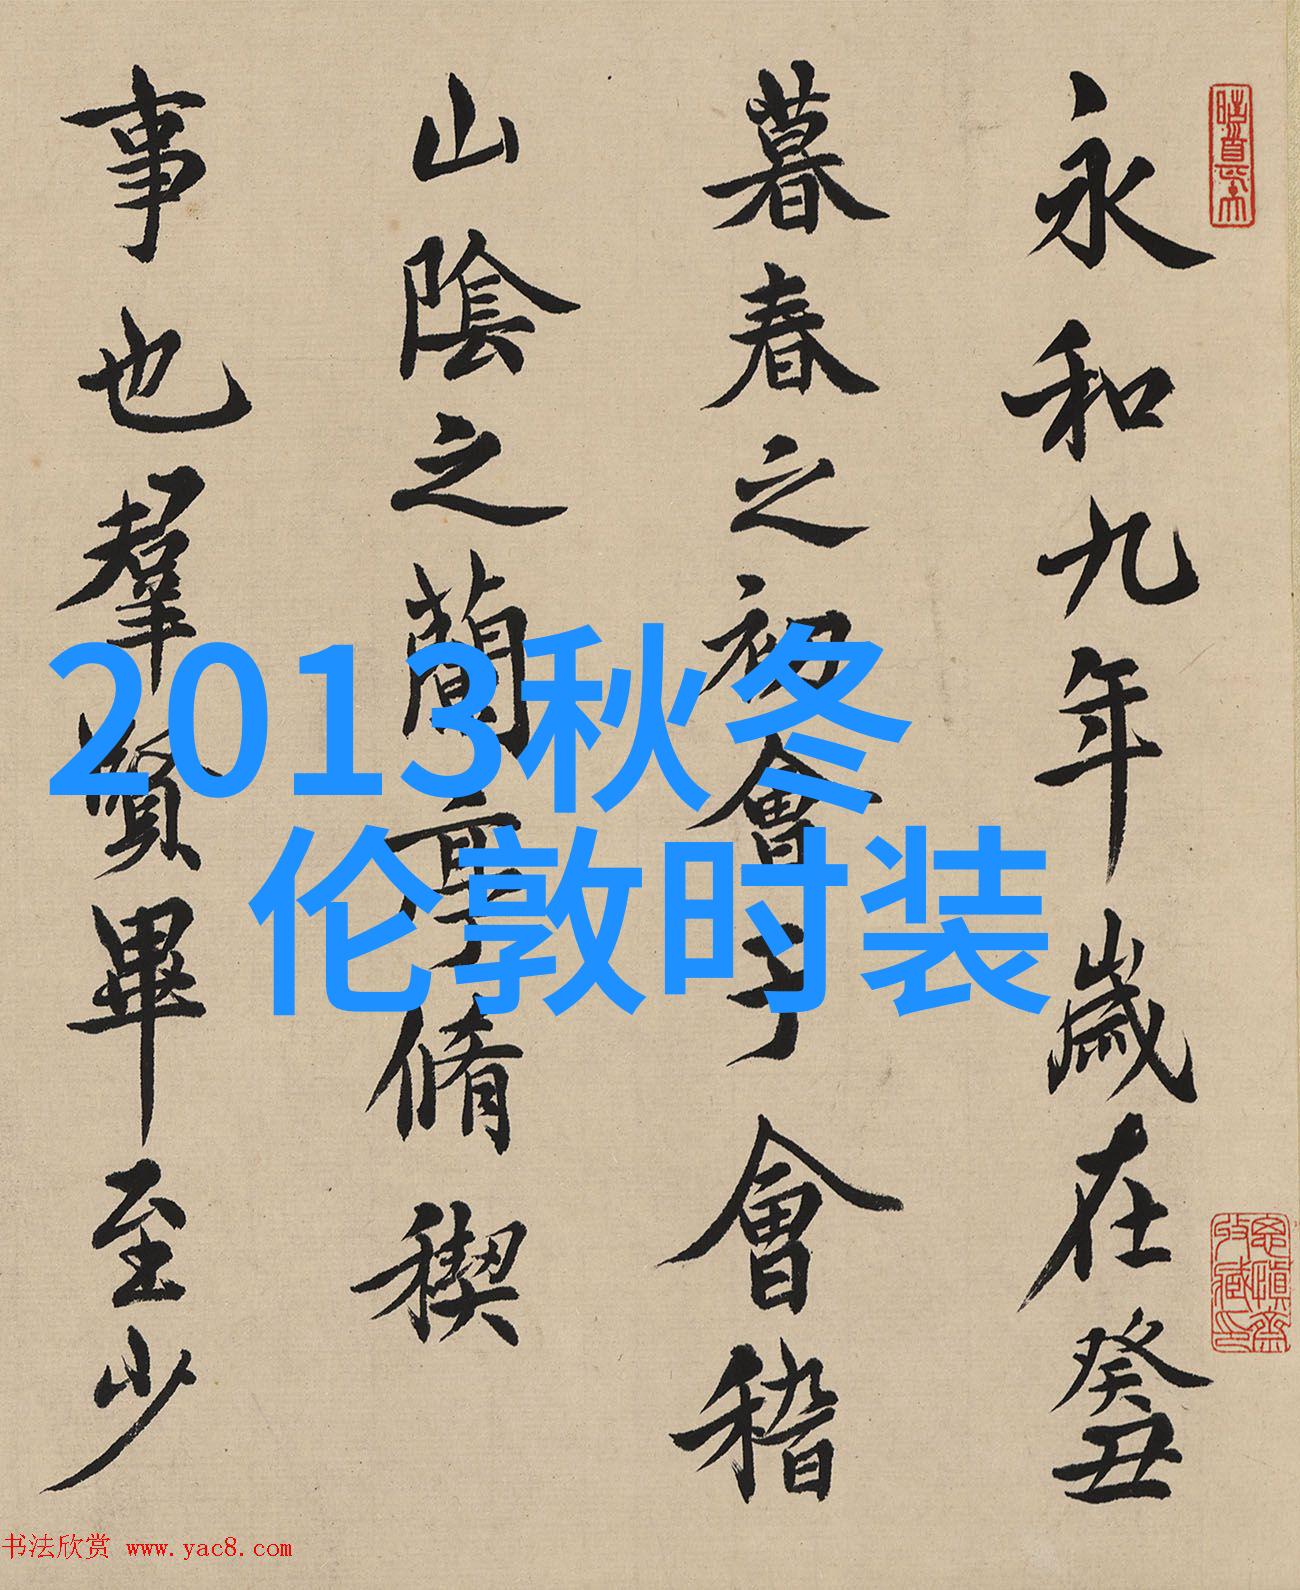 永和九年歲在癸丑
暮春之初會于會稽
山陰之蘭亭脩稧
事也羣賢畢至少
2013秋冬
伦敦时装
书法欣赏 www.yac8.com